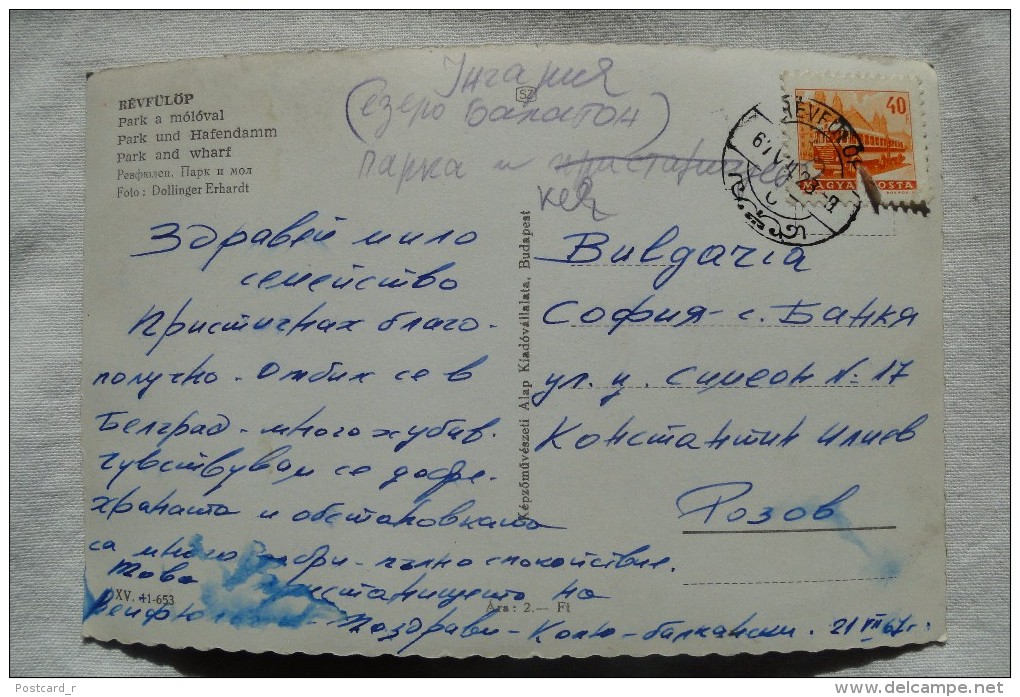 RÉVFÜLÖP
Park a mólóval
Park und Hafendamm
Park and wharf
Ревфюлеп. Парк и мол
Foto: Dollinger Erhardt
Унгария
(езеро Балатон)
парка и
кея
SZ
40
MAGYAR POSTA
Здравей мило
семейство
Пристигнах благо-
получно. Отбих се в
Белград - много хубав.
Чувствувам се добре.
храната и обстановката
са много добри - пълно спокойствие.
Това пристанището на
Поздрави - Колю - балкански. 21 VII 67 г.
XV. 41-653
Ára: 2.— Ft
Képzőművészeti Alap Kiadóvállalata, Budapest
Bulgaria
София - с. Банкя
ул. ц. Симеон № 17
Константин Илиев
Розов
Postcard_r
www.delcampe.net